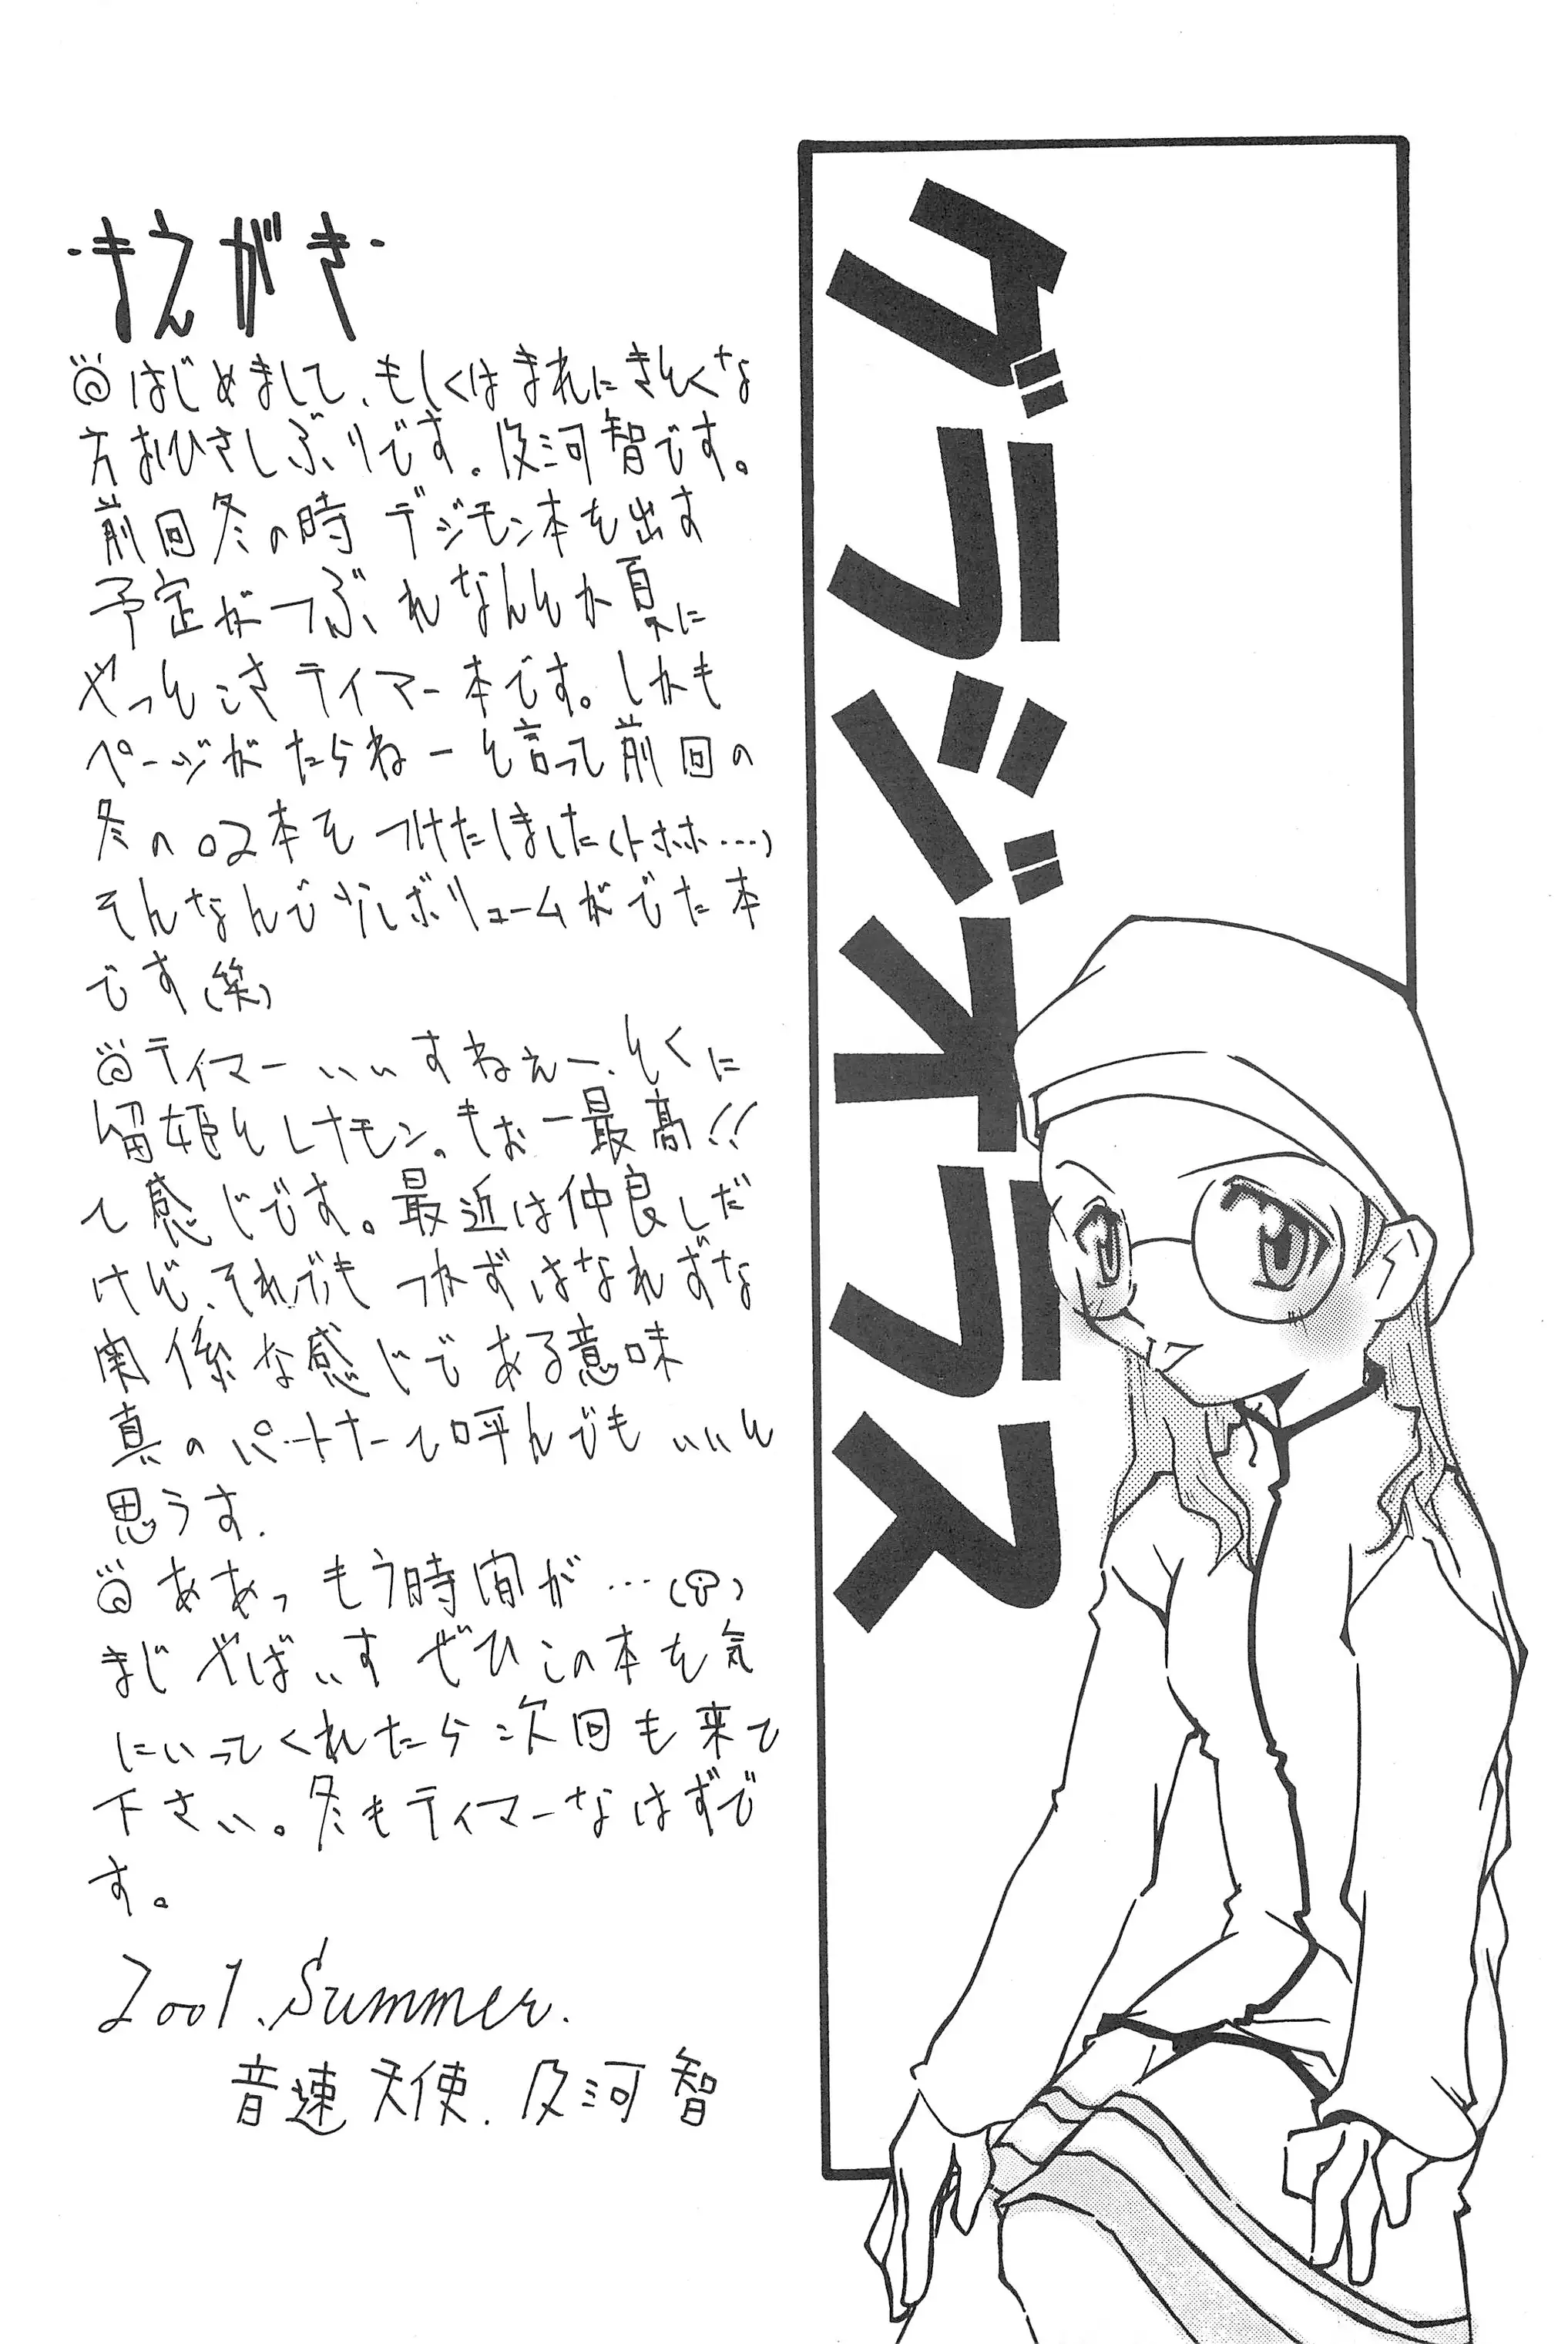 ・まえがき・
はじめまして、もしくはまれにきとくな
方おひさしぶりです。及河智です。
前回冬の時デジモン本を出す
予定がつぶれなんとか夏に
やっとこさテイマー本です。しかも
ページがたらねーと言って前回の
冬の02本をつけたしました(トホホ…)
そんなんで少しボリュームがでた本
です(笑)
テイマーいいすねぇー、とくに
留姫とレナモン。もぉー最高!!
て感じです。最近は仲良しだ
けど、それでもつかずはなれずな
関係な感じである意味
真のパートナーて呼んでもいいと
思うす.
ああっもう時間が…
まじやばいす ぜひこの本を気
にいってくれたら次回も来て
下さい。冬もテイマーなはずで
す。
2001.Summer.
音速天使.及河智
グラジオラス